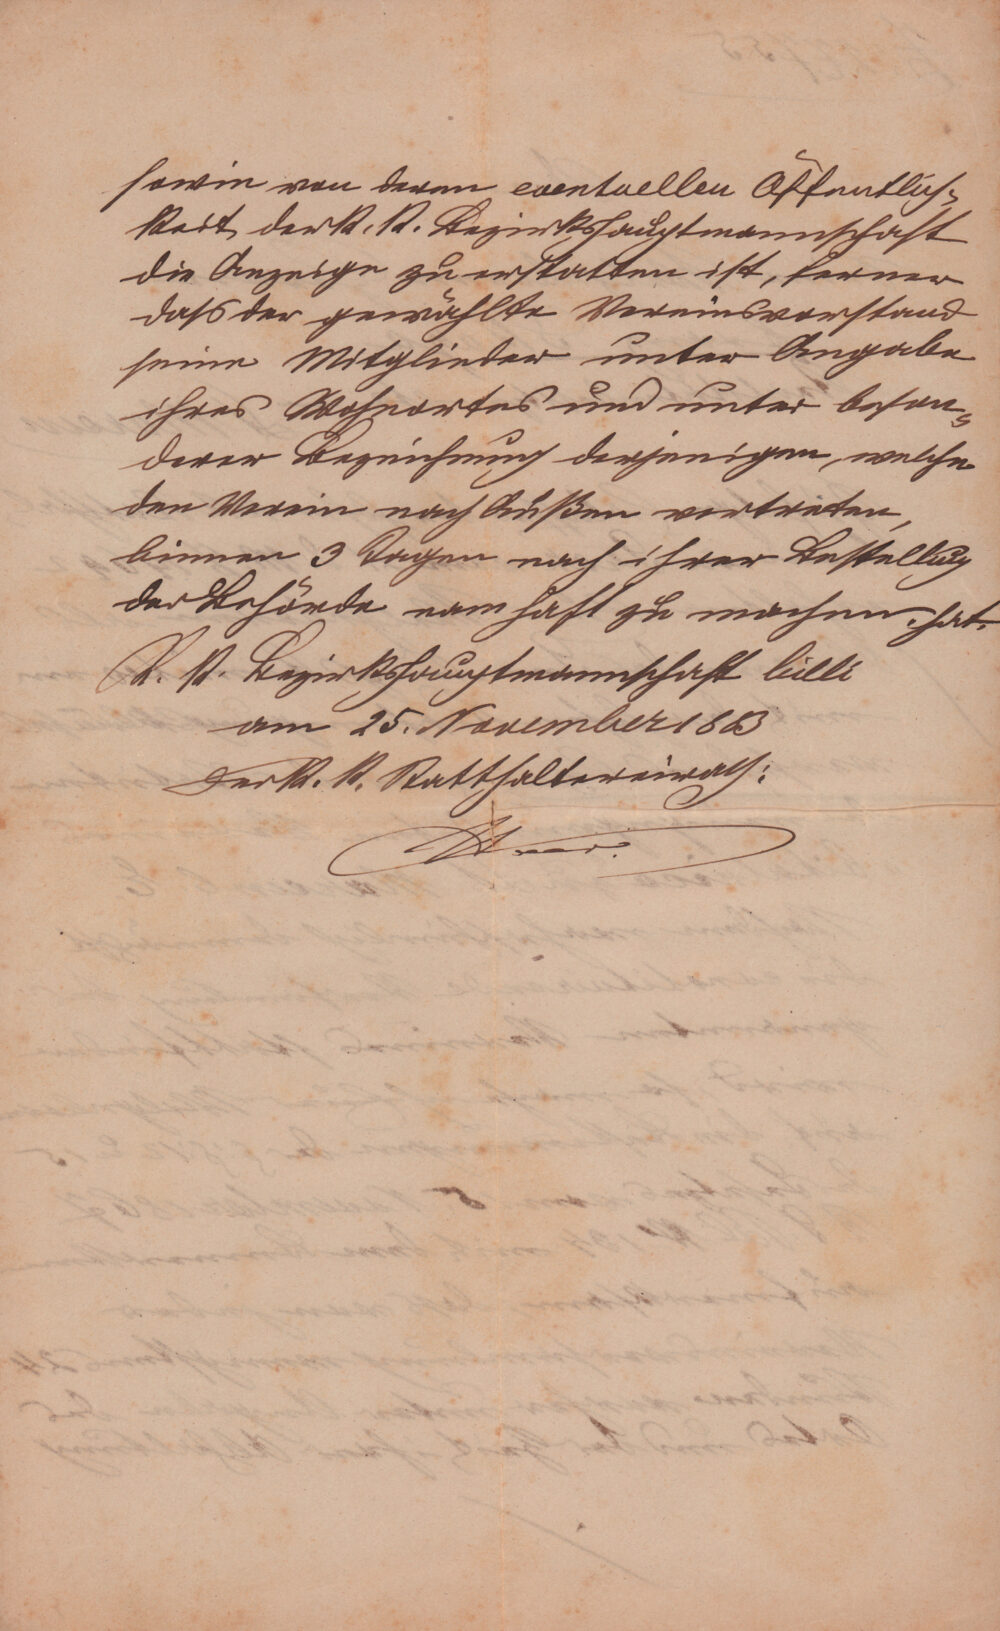 sowie von deren eventuellen Öffentlich-
keit der k. k. Bezirkshauptmannschaft
die Anzeige zu erstatten ist, ferner
dass der gewählte Vereinsvorstand
seine Mitglieder unter Angabe
ihres Wohnortes und unter beson-
derer Bezeichnung derjenigen, welche
den Verein nach Außen vertreten,
binnen 3 Tagen nach ihrer Bestellung
der Behörde namhaft zu machen hat.
K. k. Bezirkshauptmannschaft Cilli
am 25. November 1883
Der k. k. Statthaltereirath: